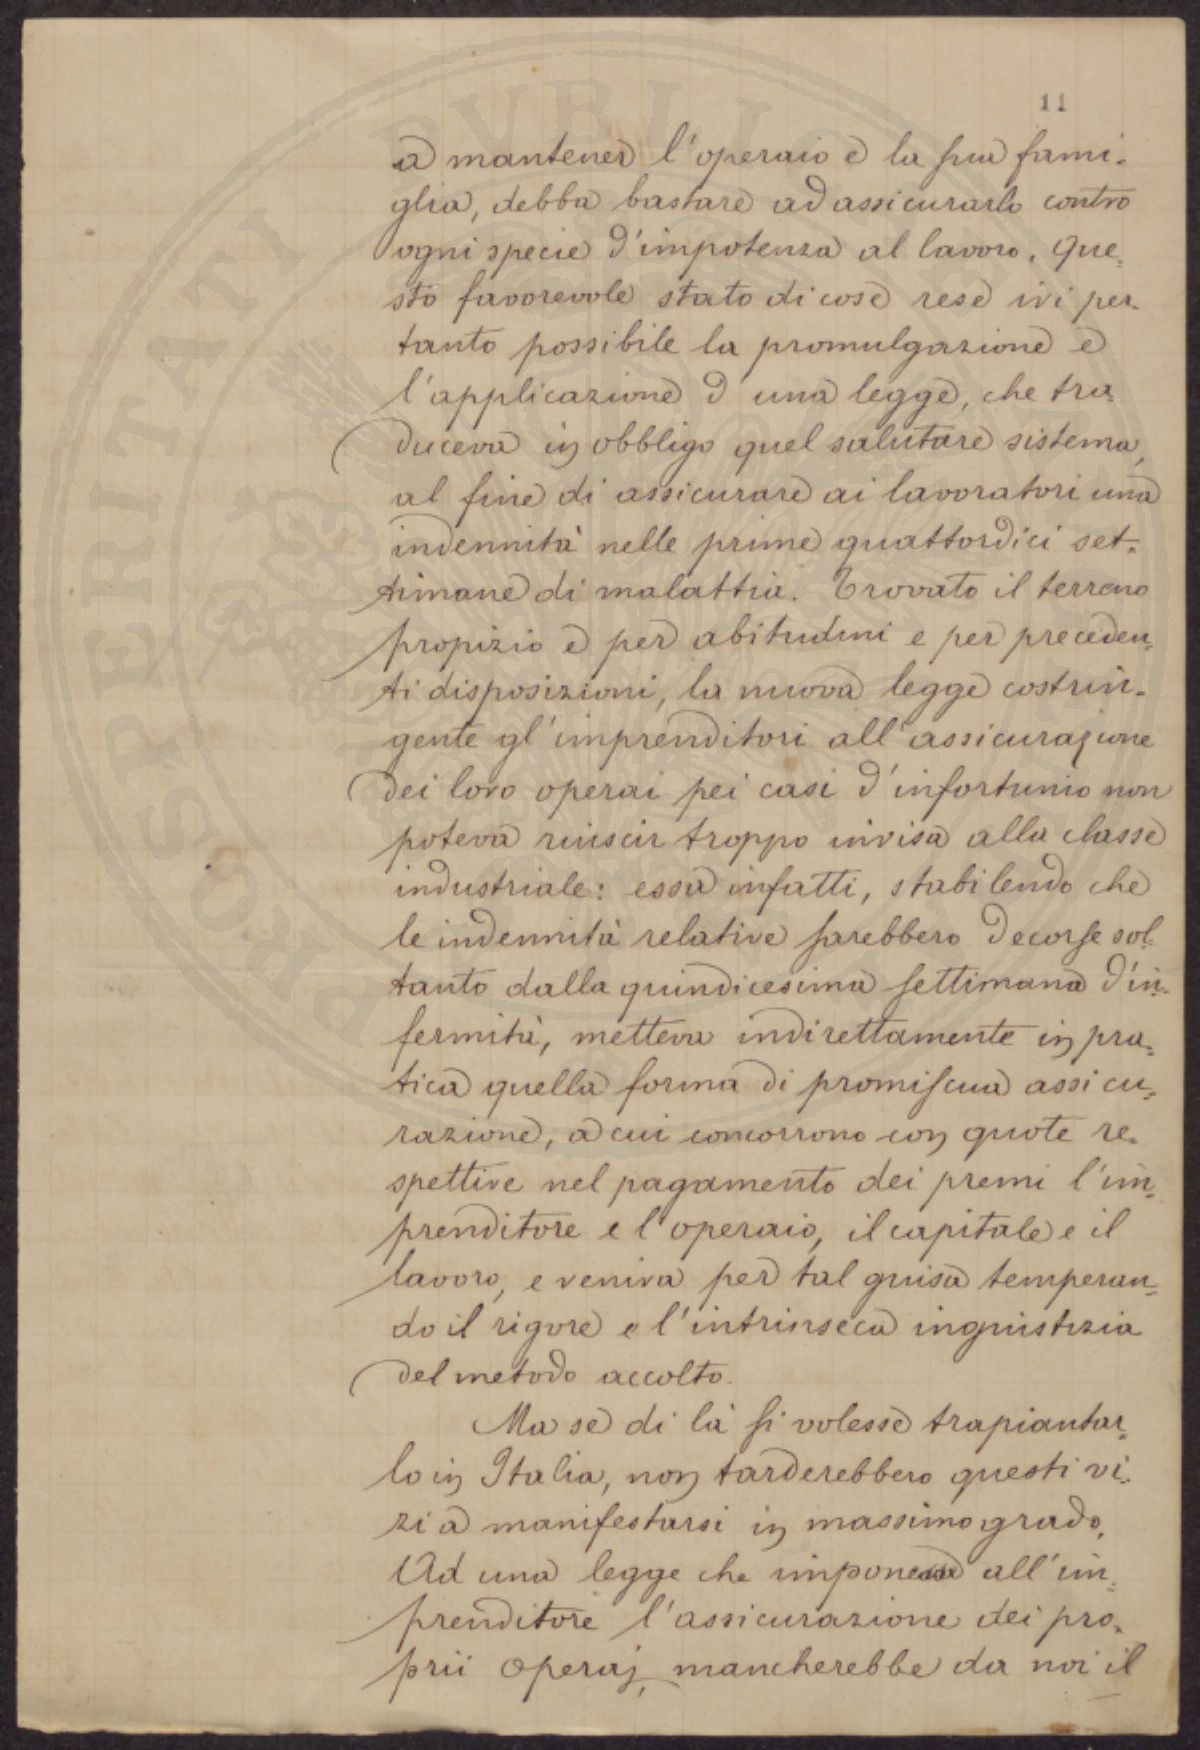 11
a mantener l'operaio e la sua fami-
glia, debba bastare ad assicurarlo contro
ogni specie d'impotenza al lavoro. Que-
sto favorevole stato di cose rese ivi per-
tanto possibile la promulgazione e
l'applicazione d'una legge, che tra-
duceva in obbligo quel salutare sistema,
al fine di assicurare ai lavoratori una
indennità nelle prime quattordici set-
timane di malattia. Trovato il terreno
propizio e per abitudini e per preceden-
ti disposizioni, la nuova legge costrin-
gente gl'imprenditori all'assicurazione
dei loro operai pei casi d'infortunio non
poteva riuscir troppo invisa alla classe
industriale: essa infatti, stabilendo che
le indennità relative sarebbero decorse sol-
tanto dalla quindicesima settimana d'in-
fermità, metteva indirettamente in pra-
tica quella forma di promiscua assicu-
razione, a cui concorrono con quote re-
spettive nel pagamento dei premi l'im-
prenditore e l'operaio, il capitale e il
lavoro, e veniva per tal guisa temperan-
do il rigore e l'intrinseca ingiustizia
del metodo accolto.
Ma se di là si volesse trapiantar-
lo in Italia, non tarderebbero questi vi-
zi a manifestarsi in massimo grado.
Ad una legge che imponesse all'im-
prenditore l'assicurazione dei pro-
prii operaj, mancherebbe da noi il
PROSPERITATI PVBLIC